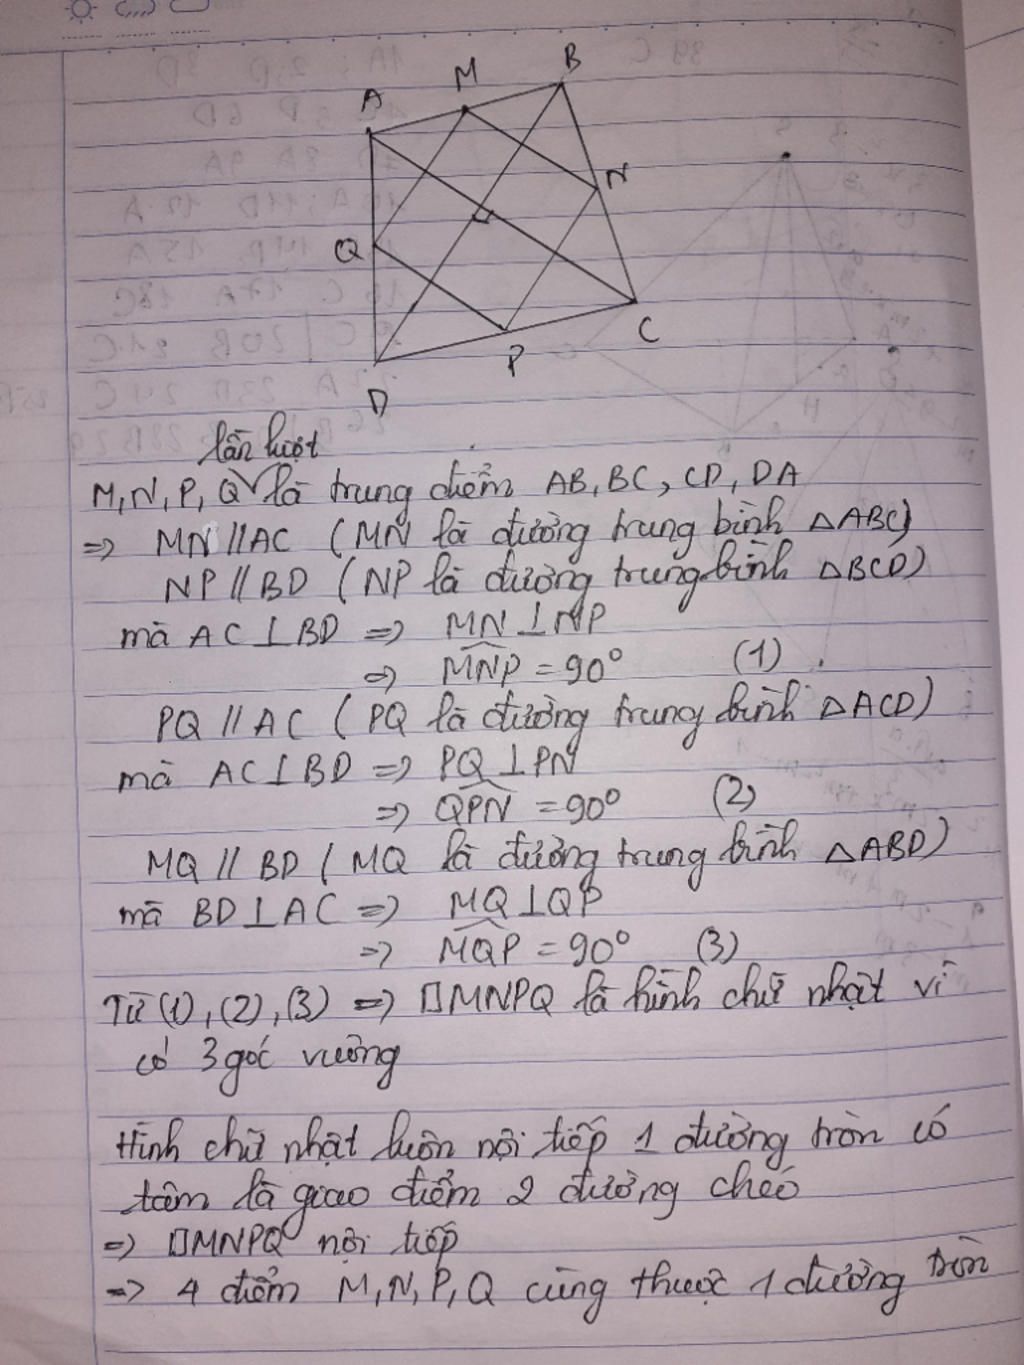 B
M
A
N
Q
C
P
D
lần lượt
M, N, P, Q là trung điểm AB, BC, CD, DA
=> MN // AC ( MN là đường trung bình △ABC)
NP // BD ( NP là đường trung bình △BCD)
mà AC ⊥ BD => MN ⊥ NP
=> \widehat{MNP} = 90° (1)
PQ // AC ( PQ là đường trung bình △ACD)
mà AC ⊥ BD => PQ ⊥ PN
=> \widehat{QPN} = 90° (2)
MQ // BD ( MQ là đường trung bình △ABD)
mà BD ⊥ AC => MQ ⊥ QP
=> \widehat{MQP} = 90° (3)
Từ (1), (2), (3) => □MNPQ là hình chữ nhật vì
có 3 góc vuông
Hình chữ nhật luôn nội tiếp 1 đường tròn có
tâm là giao điểm 2 đường chéo
=> □MNPQ nội tiếp
=> 4 điểm M, N, P, Q cùng thuộc 1 đường tròn